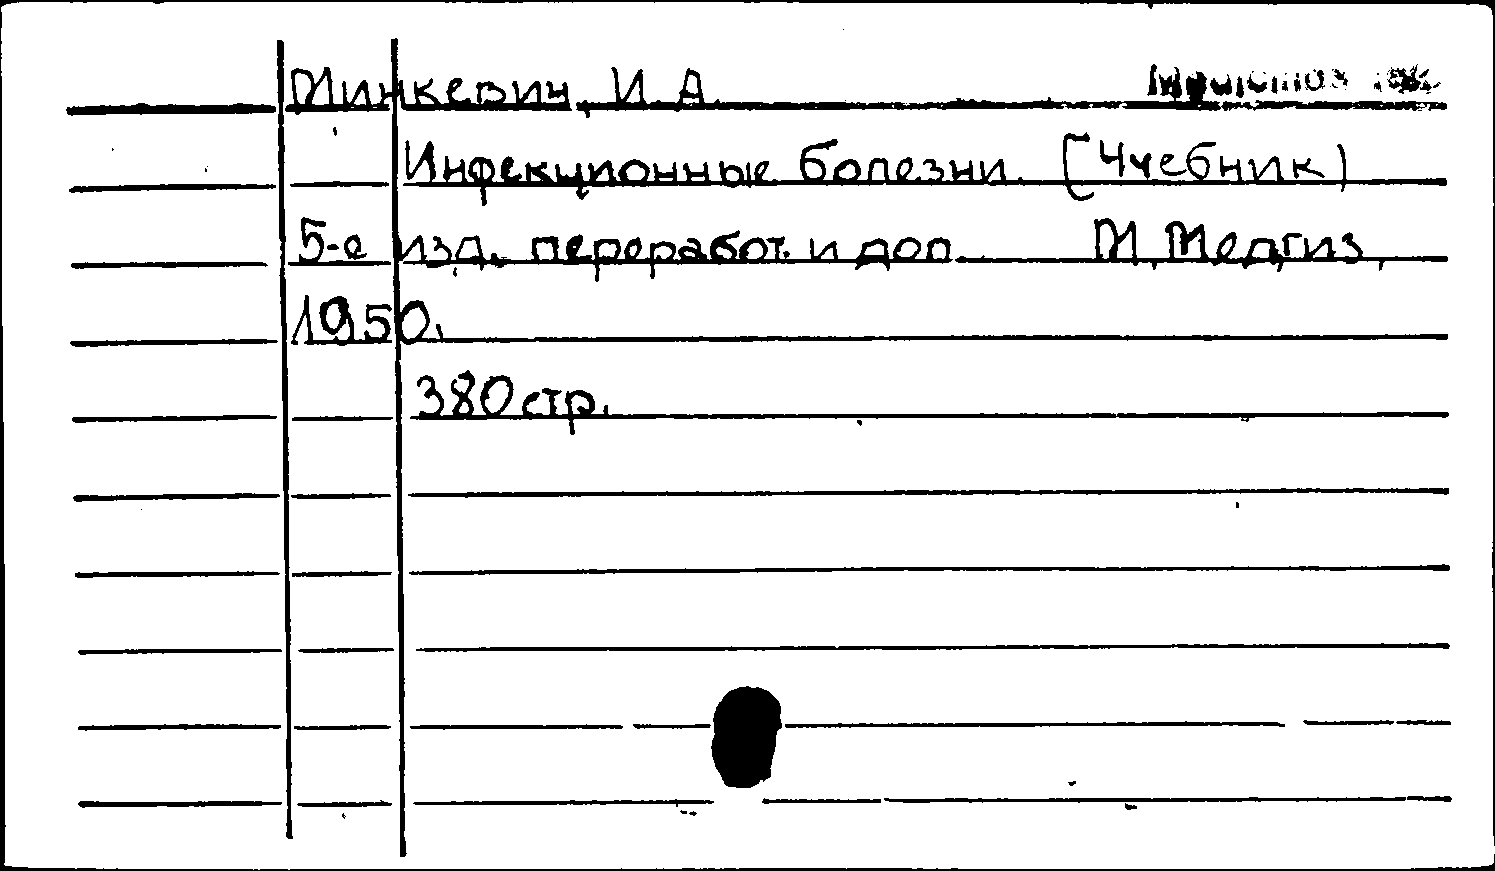 Минкевич, И. А.
Инфекционные болезни. [Учебник]
5-е изд., переработ. и доп. М, Медгиз,
1950.
380 стр.